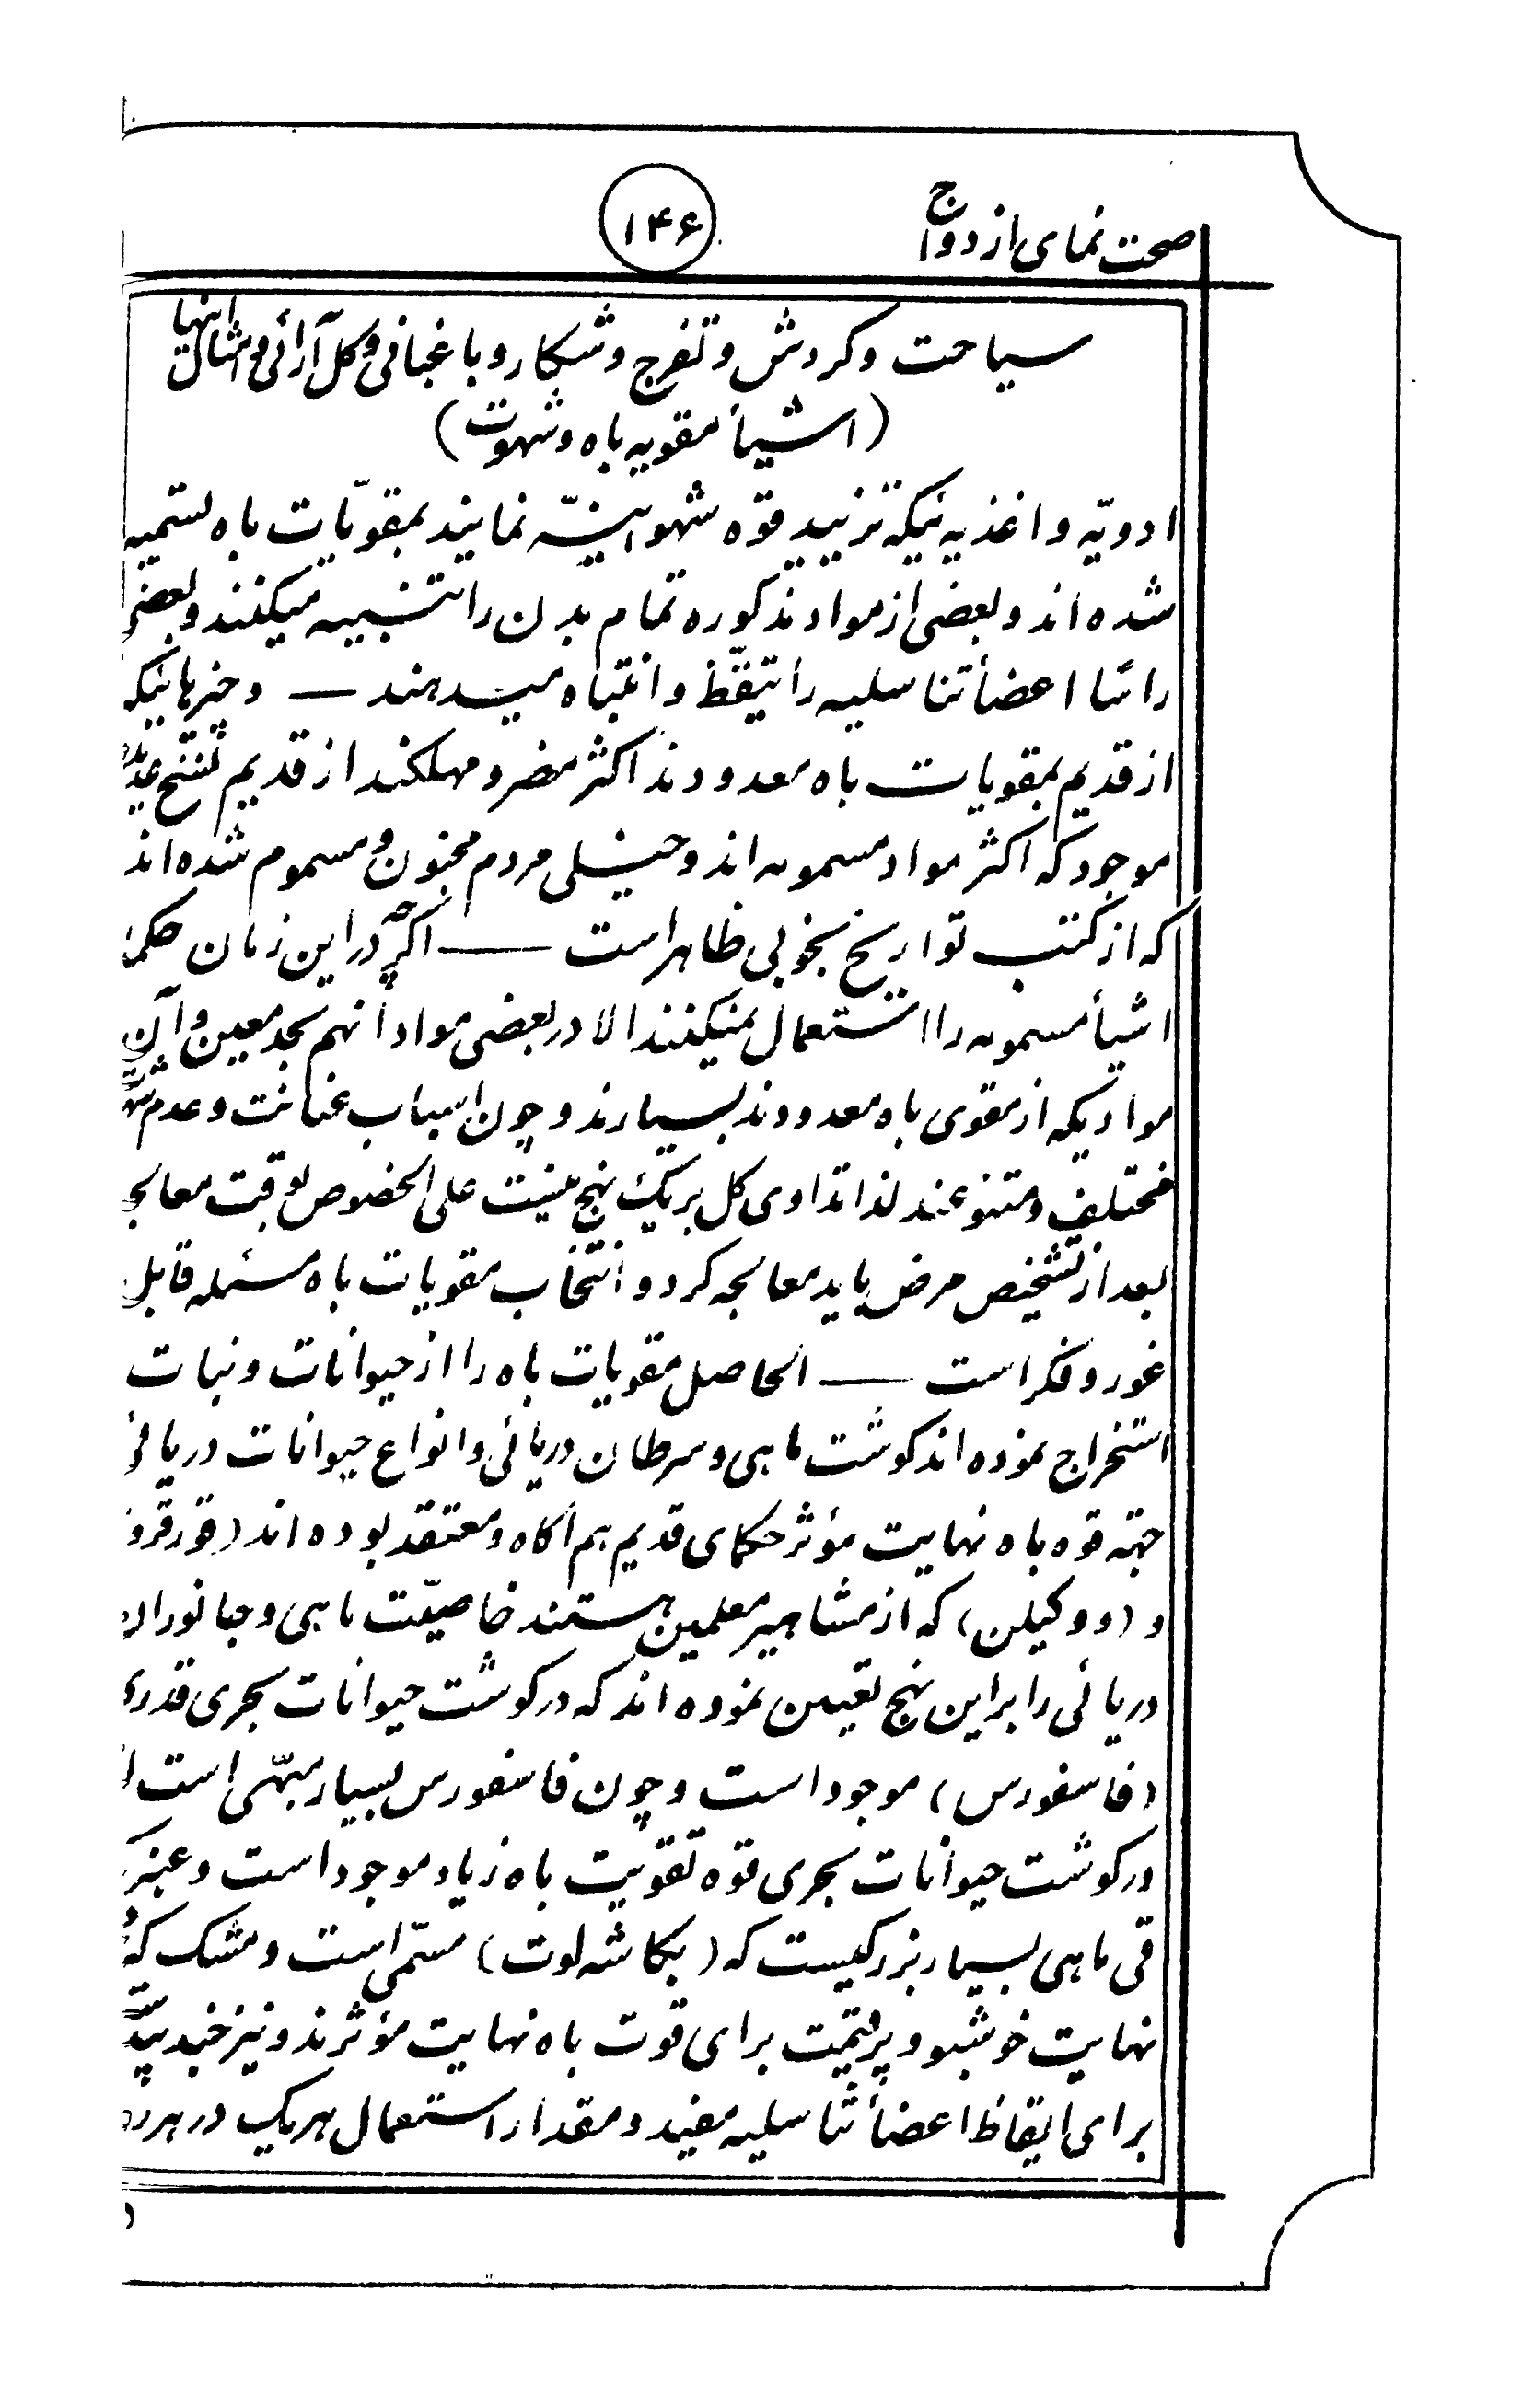 صحت نمای ازدواج
۱۴۶
سیاحت وکردش وتفرج وشکار وباغبانی وکل آرائی وامثال اینها
(اشیأ مقویه باه وشهوت)
ادویّه واغذیه ئیکه تزیید قوه شهوانیّه نمایند بمقویّات باه تسمیه
شده اند وبعضی از مواد مذکوره تمام بدن را تنبیه میکنند وبعضی
رأسًا اعضأ تناسلیه را تیقّظ وانتباه میدهند — وچیزهائیکه
از قدیم بمقویات باه معدودند اکثر مضر ومهلکند از قدیم نسخ
موجود که اکثر مواد مسمومه اند وخیلی مردم مجنون ومسموم شده اند
که از کتب تواریخ بخوبی ظاهر است — اکرچه در این زمان حکما
اشیأ مسمومه را استعمال نمیکنند الا در بعضی مواد آنهم بحد معین وآن
موادیکه از مقوی باه معدودند بسیارند وچون اسباب عنانت وعدم
مختلف ومتنوعند لذا تداوی کل بریک نهج نیست علی الخصوص بوقت معالجه
بعد از تشخیص مرض باید معالجه کرد وانتخاب مقویات باه مسئله قابل
غور وفکر است — الحاصل مقویات باه را از حیوانات ونبات
استخراج نموده اند کوشت ماهی وسرطان دریائی وانواع حیوانات دریائی
جهته قوه باه نهایت مؤثر حکمای قدیم هم آکاه ومعتقد بوده اند (فورقروا
و (ووکیلن) که از مشاهیر معلمین هستند خاصیّت ماهی وجانوران
دریائی را براین نهج تعیین نموده اند که در کوشت حیوانات بحری قدری
(فاسفورس) موجود است وچون فاسفورس بسیار مبهّی است
در کوشت حیوانات بحری قوه تقویت باه زیاد موجود است وعنبر
قی ماهی بسیار بزرکیست که (بکاشه لوت) مسمّی است ومشک که
نهایت خوشبو وپرقیمت برای قوت باه نهایت مؤثرند ونیز جند
برای ایقاظ اعضأ تناسلیه مفید ومقدار استعمال هریک در هر